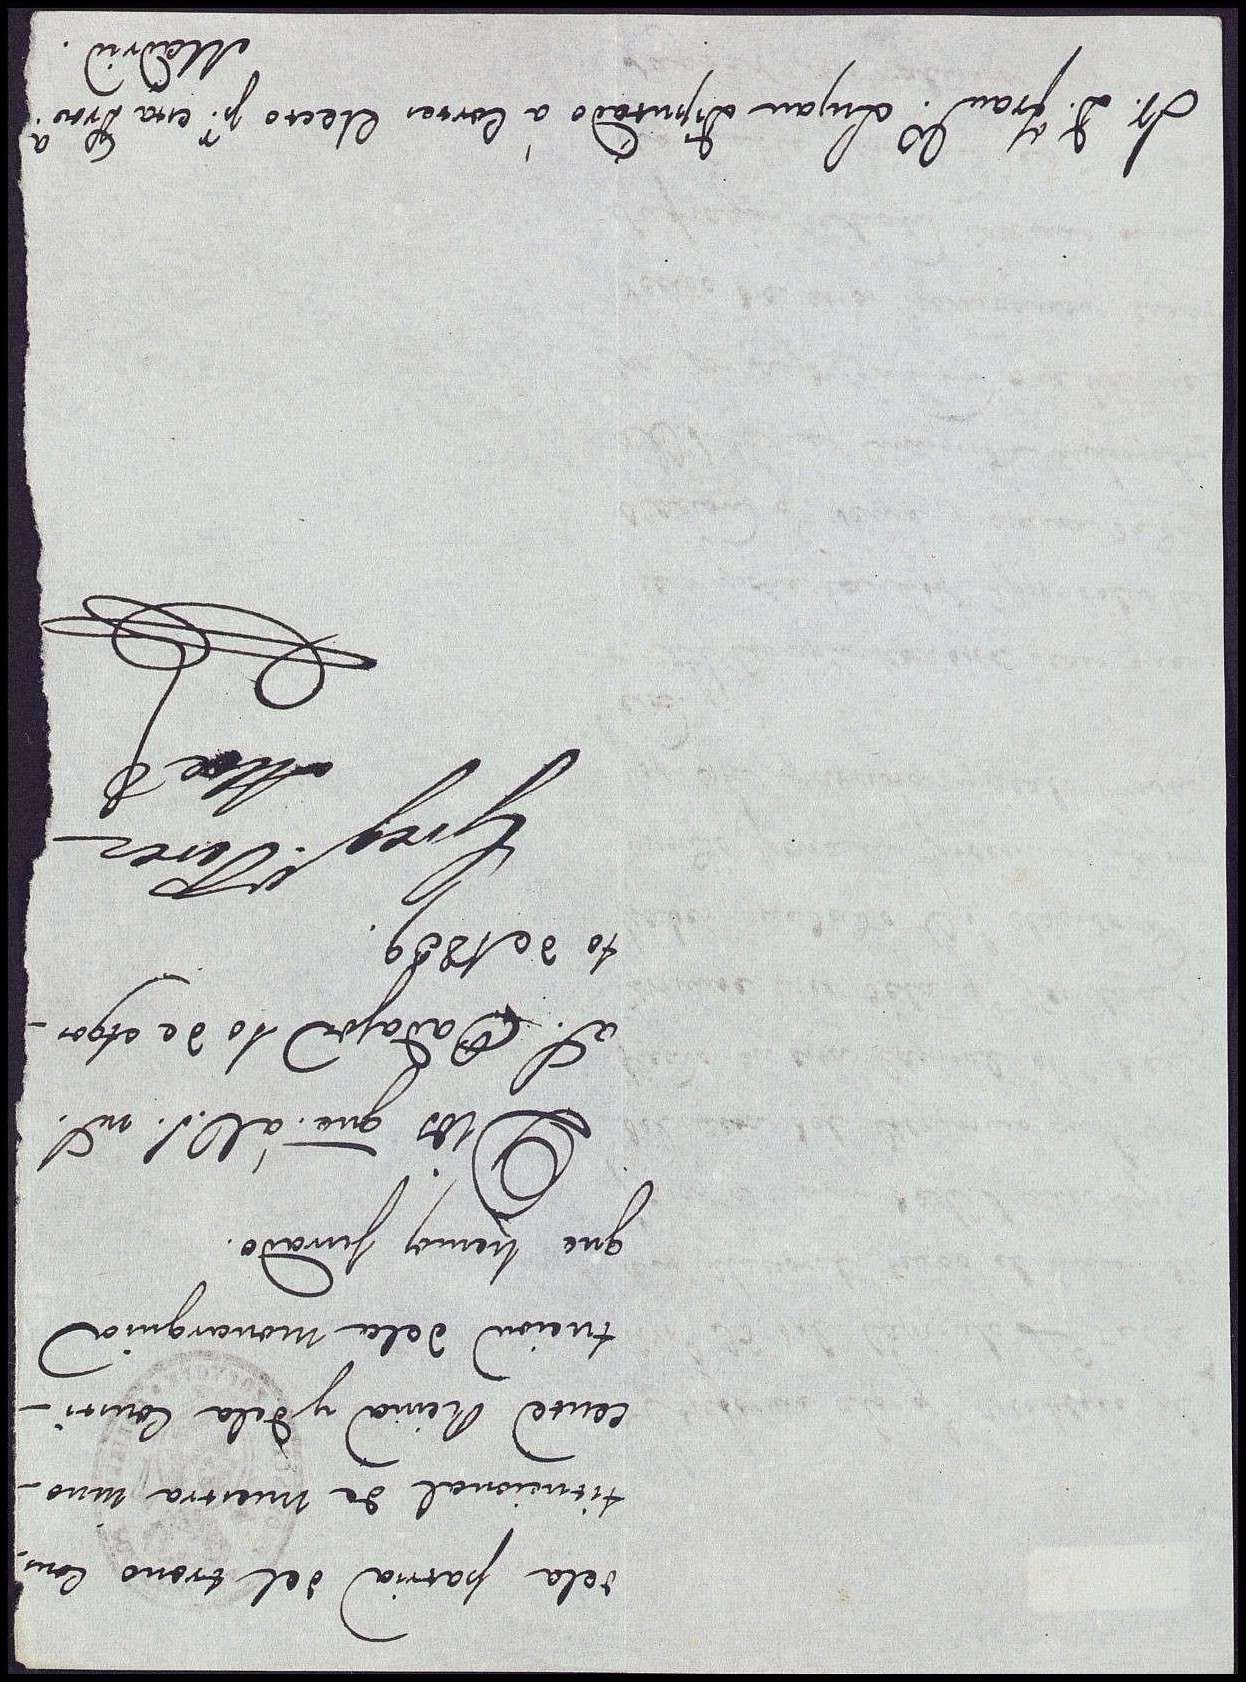 dela patria del trono Cons-
titucional de nuestra ino-
cente Reina y dela Consti-
tucion dela monarquia
que hemos jurado.
Dios gue. á V.S. m.s a.s Badajoz 10 de Agos-
to de 1839.
Greg.o Perez
Sr. D. Fran.co Lujan Diputado á Cortes electo p.r esta Prov.a
Madrid.